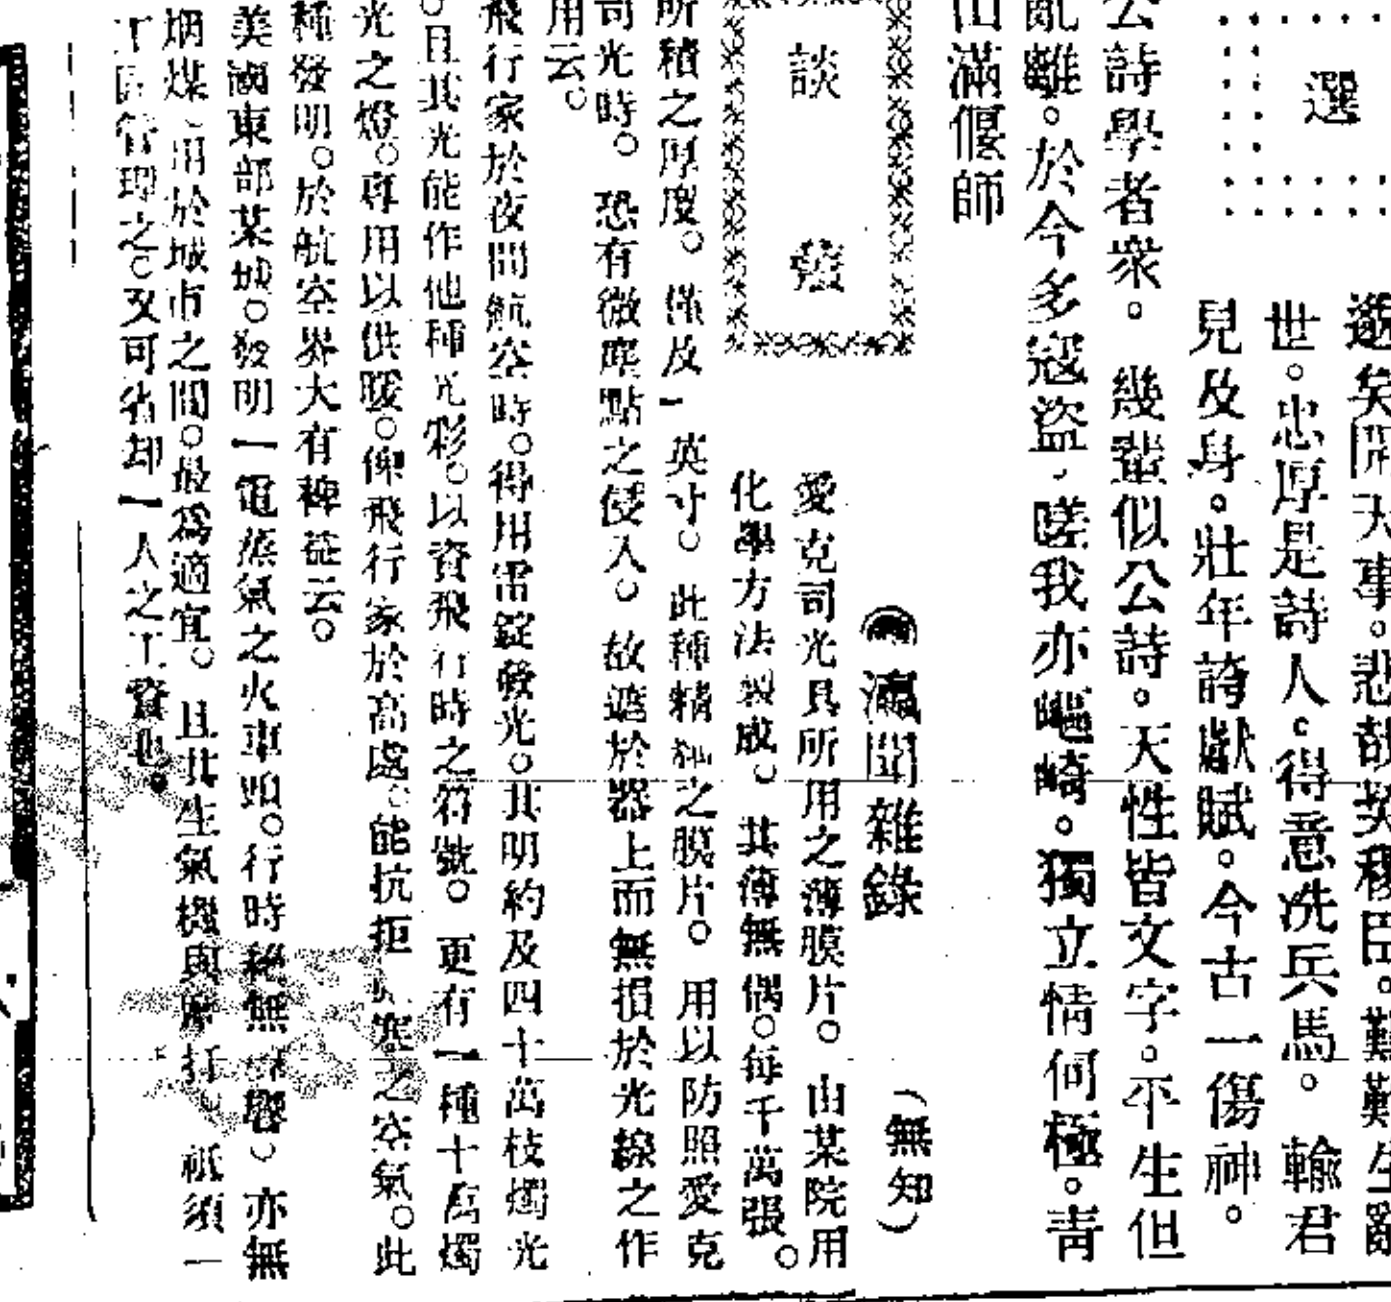 選
邈矣開天事。悲哉契稷臣。艱難生亂
世。忠厚是詩人。得意洗兵馬。輸君
見及身。壯年誇獻賦。今古一傷神。
公詩學者衆。幾輩似公詩。天性皆文字。平生但
亂離。於今多寇盜、嗟我亦嶇崎。獨立情何極。青
山滿偃師
談叢
瀛聞雜錄
(無知)
愛克司光具所用之薄膜片。由某院用
化學方法製成。其薄無偶。每千萬張。
所積之厚度。僅及一英寸。此種精細之膜片。用以防照愛克
司光時。恐有微塵點之侵入。故遮於器上而無損於光線之作
用云。
飛行家於夜間航空時。得用雷錠發光。其明約及四十萬枝燭光
。且其光能作他種光彩。以資飛行時之符號。更有一種十萬燭
光之燈。專用以供暖。俾飛行家於高處。能抗拒寒之空氣。此
種發明。於航空界大有裨益云。
美國東部某城。發明一電蒸氣之火車頭。行時絕無聲。亦無
烟煤、用於城市之間。最爲適宜。且其生氣機與摩打。祇須一
工管理之。又可省却一人之工資也。